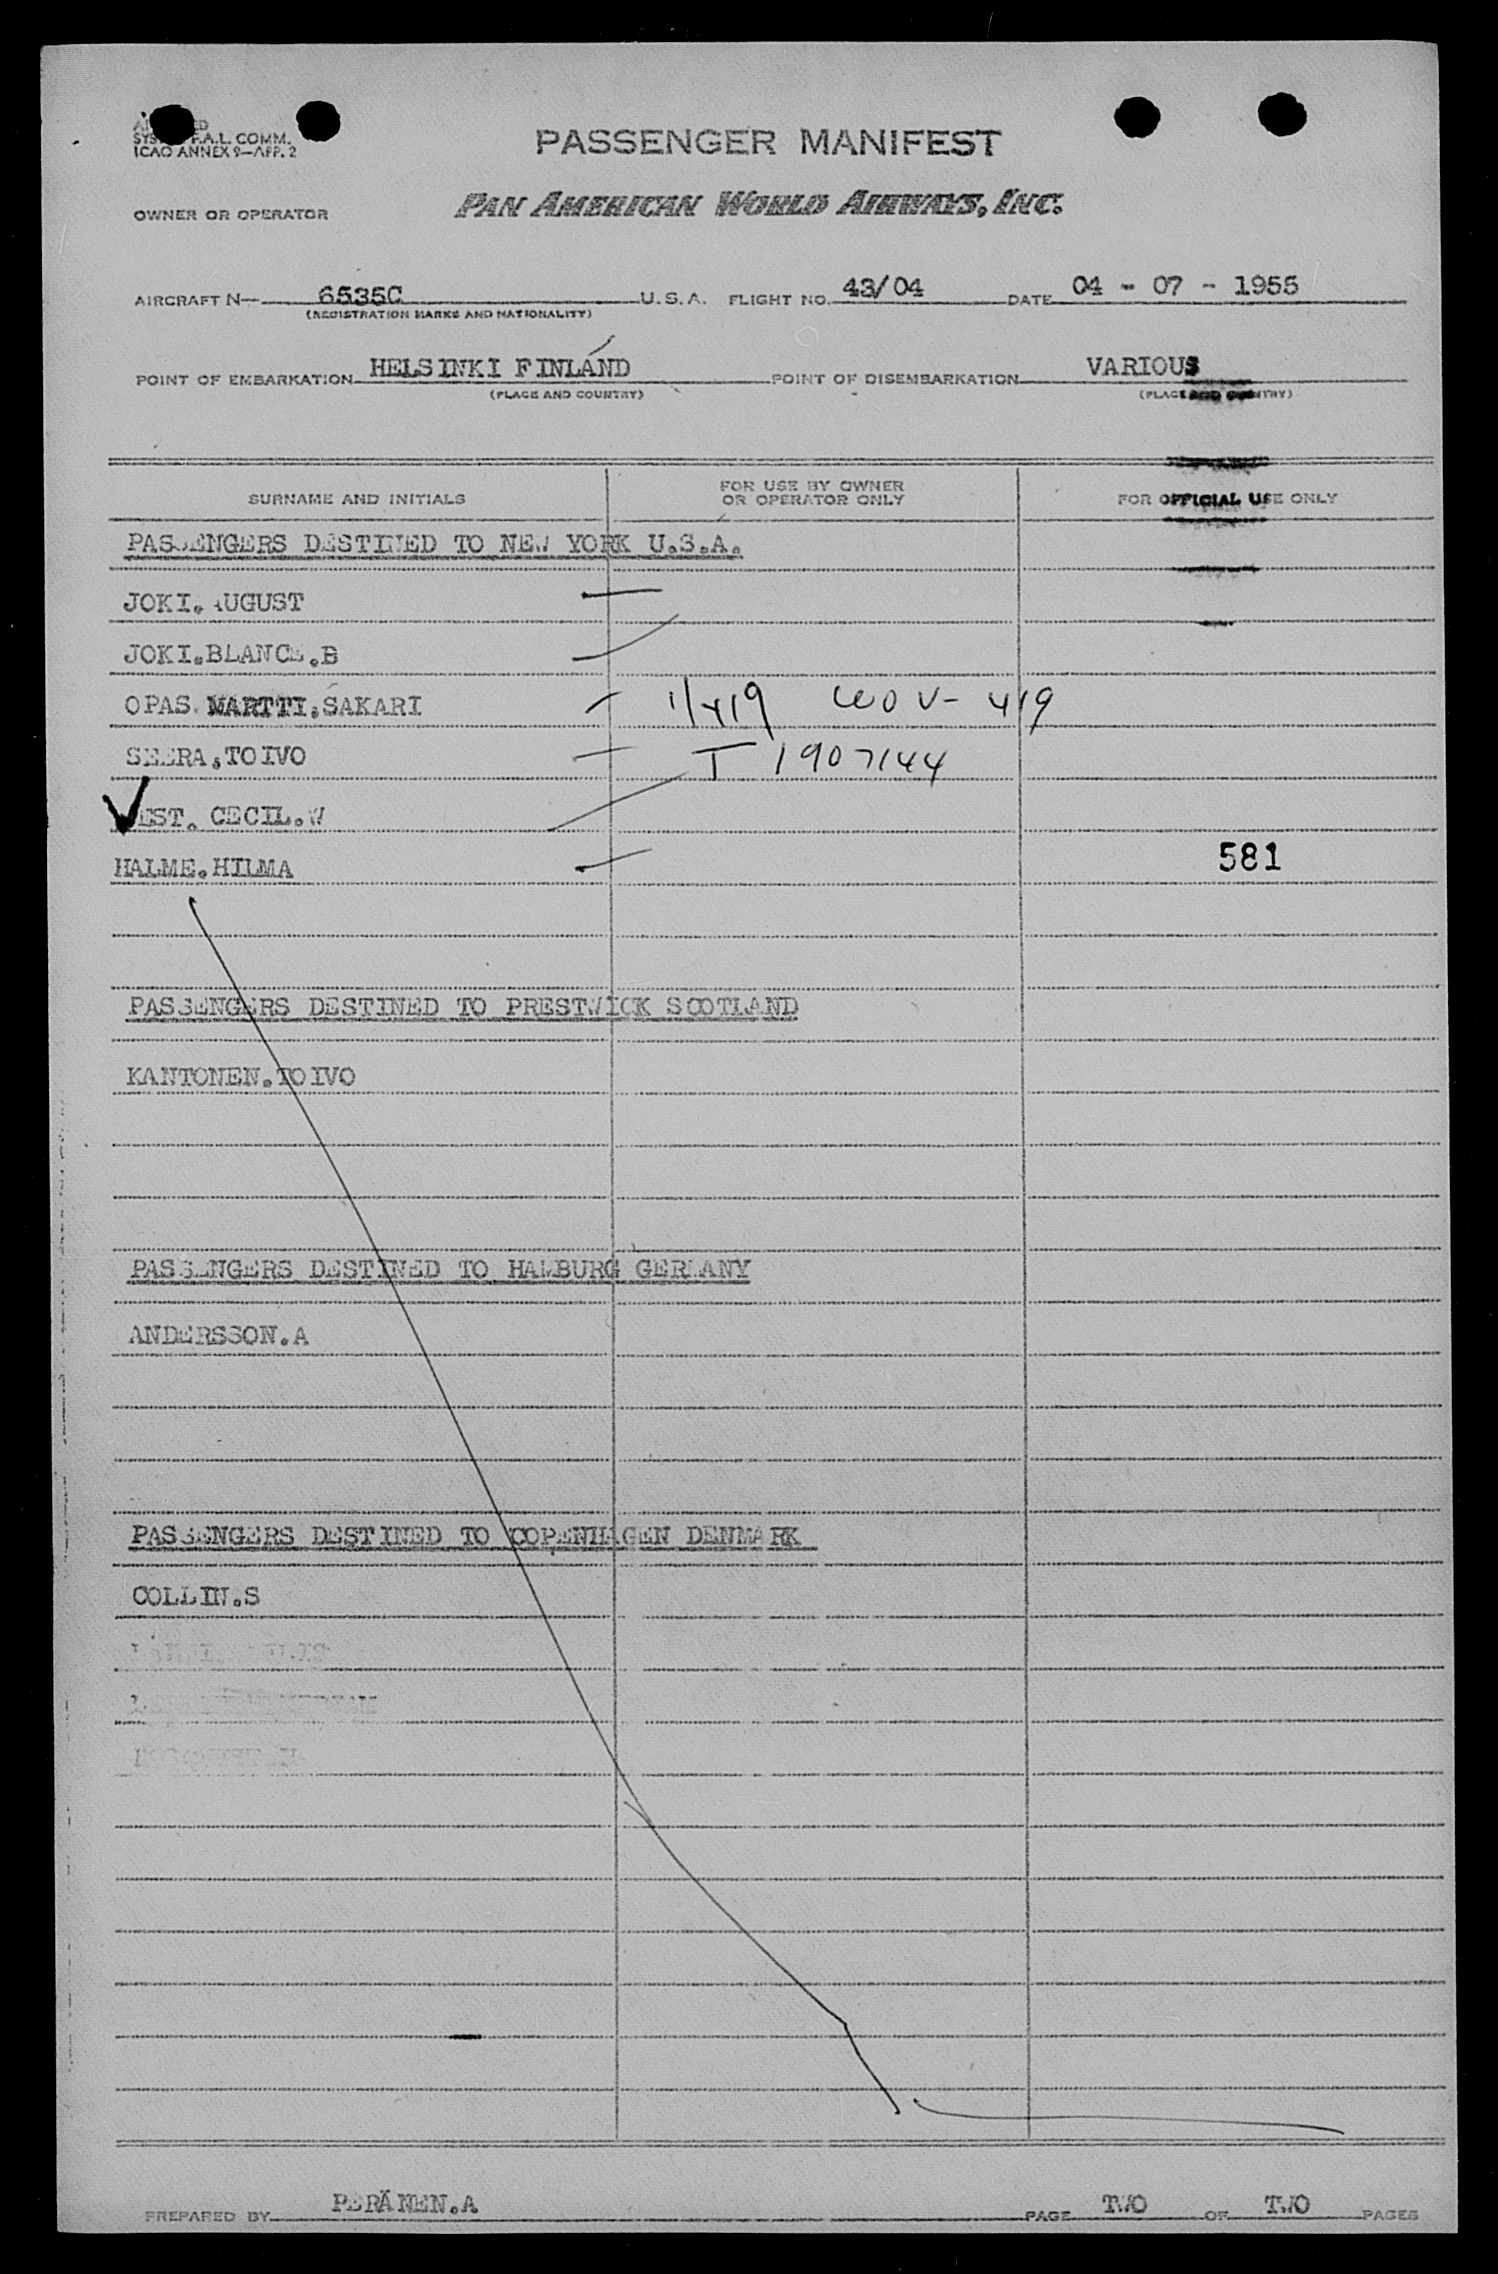 SYS F.A.L. COMM.
ICAO ANNEX 9—APP. 2
PASSENGER MANIFEST
OWNER OR OPERATOR PAN AMERICAN WORLD AIRWAYS, INC.
AIRCRAFT N— 6535C U.S.A. FLIGHT NO. 43/04 DATE 04 - 07 - 1955
(REGISTRATION MARKS AND NATIONALITY)
POINT OF EMBARKATION HELSINKI FINLAND POINT OF DISEMBARKATION VARIOUS
(PLACE AND COUNTRY) (PLACE AND COUNTRY)
SURNAME AND INITIALS FOR USE BY OWNER OR OPERATOR ONLY FOR OFFICIAL USE ONLY
PASSENGERS DESTINED TO NEW YORK U.S.A.
JOKI.AUGUST
JOKI.BLANCE.B
OPAS. MARTTI.SAKARI 1/419 WOV- 419
SEERA.TOIVO T 1907144
EST. CECIL.W
HALME.HILMA 581
PASSENGERS DESTINED TO PRESTWICK SCOTLAND
KANTONEN.TOIVO
PASSENGERS DESTINED TO HAMBURG GERMANY
ANDERSSON.A
PASSENGERS DESTINED TO COPENHAGEN DENMARK
COLLIN.S
PREPARED BY PERÄNEN.A PAGE TWO OF TWO PAGES